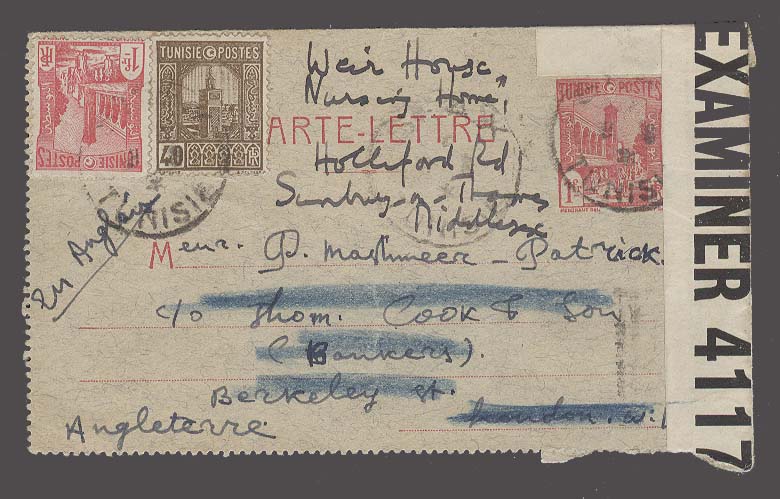 TUNISIE POSTES
1Fc
TUNISIE POSTES
40
Weir House
Nursing Home,
CARTE-LETTRE
Holliford Rd
Sunbury-on-Thames
Middlesex
TUNISIE POSTES
1Fc
TUNISIE
TUNIS
En Anglais
Meur. P. Patrick.
c/o Thom. Cook & Son
(Bankers).
Berkeley St.
London. W.1
Angleterre
EXAMINER 4117